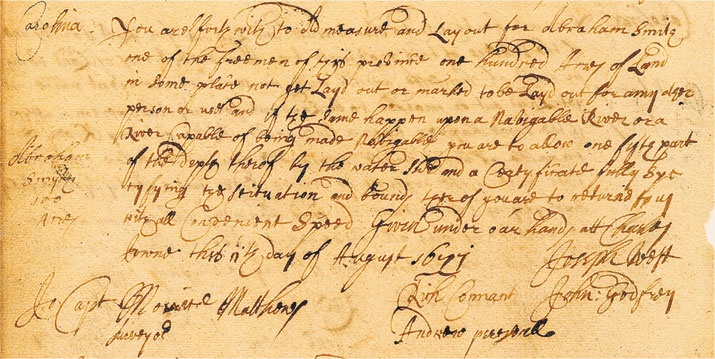 Carolina.
You are forthwith to Admeasure and Layout for Abraham Smith
one of the freemen of this province one hundred Acres of Land
in some place not yet Layd out or marked to be Layd out for any other
person or uses and if the same happen upon a Navigable River or a
River capable of being made Navigable you are to allow one fifth part
of the depth therof by the water side and a Certificate fully spe
cifying the scituation and bounds therof you are to returne to us
with all Convenient Speed Given under our hands att Charles
towne this day of August
Abraham
Smith
100
Acres
Joseph West
To Capt Mathews
surveyor
Rich Connant John: Godfrey
Andrew percivall